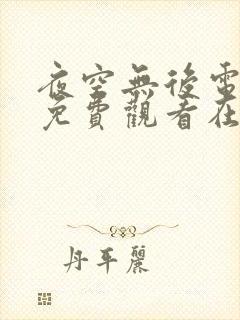 夜空無後電
免費觀看在
丹平麗